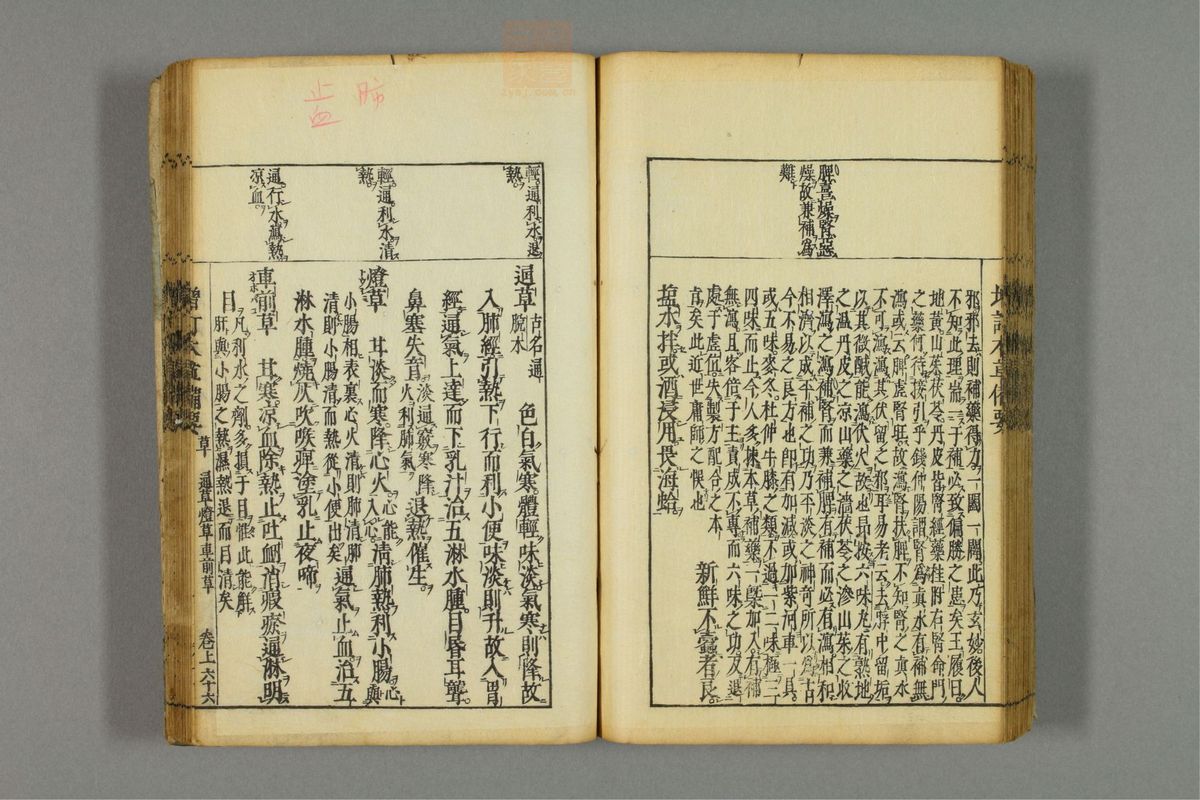 脾喜燥腎惡
燥故兼補為
難
邪邪去則補藥得力一闢一闔此乃玄妙後人
不知此理耑一于補必致偏勝之患矣王履曰
地黃山茱茯苓丹皮皆腎經藥桂附右腎命門
之藥何待接引乎錢仲陽謂腎為真水有補無
瀉或云脾虛腎旺故瀉腎扶脾不知腎之真水
不可瀉瀉其伏留之邪耳易老云去脬中留垢
以其微鹹能瀉伏火故也昂按六味丸有熟地
之溫丹皮之涼山藥之濇茯苓之滲山茱之收
澤瀉之瀉補腎而兼補脾有補而必有瀉相和
相濟以成平補之功乃平淡之神奇所以為古
今不易之良方也即有加減或加紫河車一具
或五味麥冬杜仲牛膝之類不過一二味極三
四味而止今人多揀本草補藥一槩加入有補
無瀉且客倍于主責成不專而六味之功反退
處于虛位失製方配合之本
㫖矣此近世庸師之悞也 新鮮不蠹者良
鹽水拌或酒浸用畏海蛤
輕通利水退
熱
輕通利水清
熱
通行水瀉熱
涼血
通草 古名通脫木 色白氣寒體輕味淡氣寒則降故
入肺經引熱下行而利小便味淡則升故入胃
經通氣上達而下乳汁治五淋水腫目昏耳聾
鼻塞失音 淡通竅寒降火利肺氣 退熱催生
燈草 甘淡而寒降心火 心能入心 清肺熱利小腸 心與
小腸相表裏心火清則肺清肺
清則小腸清而熱從小便出矣 通氣止血治五
淋水腫燒灰吹喉痹塗乳止夜啼
車前草 甘寒涼血除熱止吐衂消瘕瘀通淋明
目 凡利水之劑多損于目惟此能解
肝與小腸之熱濕熱退而目清矣
增訂本草備要
草
通草燈草車前草
卷上六十六
肺
止血
zysj.com.cn